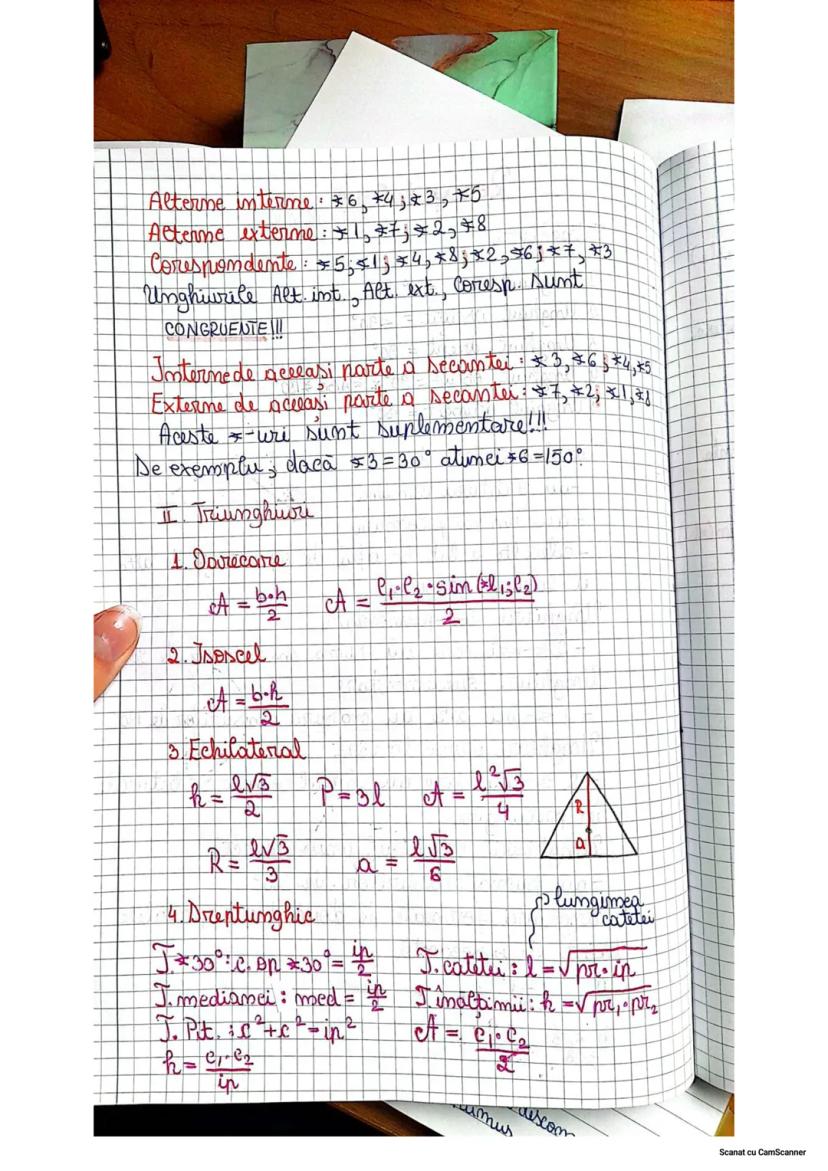 Alterne interne: ∢6, ∢4; ∢3, ∢5
Alterne externe: ∢1, ∢7; ∢2, ∢8
Corespondente: ∢5, ∢1; ∢4, ∢8; ∢2, ∢6; ∢7, ∢3
Unghiurile Alt. int., Alt. ext., Coresp. sunt
CONGRUENTE!!!
Interne de aceeasi parte a secantei: ∢3, ∢6; ∢4, ∢5
Externe de aceeași parte a secantei: ∢7, ∢2; ∢1, ∢8
Aceste ∢-uri sunt suplementare!!!
De exemplu, dacă ∢3 = 30° atunci ∢6 = 150°.
II. Triunghiuri
1. Oarecare
A = b·h/2 A = l₁·l₂·sin(∢l₁;l₂)/2
2. Isoscel
A = b·h/2
3. Echilateral
h = l√3/2 P = 3l A = l²√3/4
R
a
R = l√3/3 a = l√3/6
lungimea
catetei
4. Dreptunghic
T.∢30°: c. op ∢30° = ip/2 T. catetei: l = √pr·ip
T. medianei: med = ip/2 T. înălțimii: h = √pr₁·pr₂
T. Pit.: c² + c² = ip² A = c₁·c₂/2
h = c₁·c₂/ip
Scanat cu CamScanner